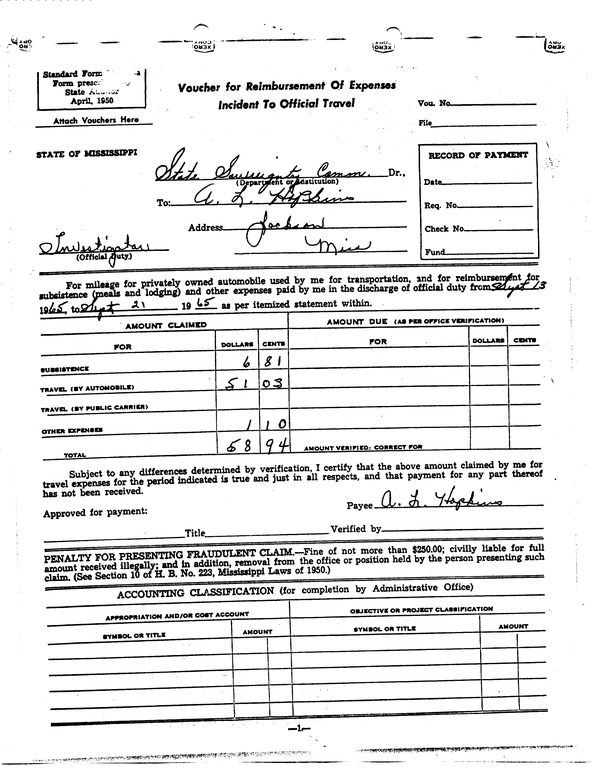 Standard Form
Form presc
State
April, 1950
Attach Vouchers Here
Voucher for Reimbursement Of Expenses
Incident To Official Travel
Vou. No.
File
STATE OF MISSISSIPPI
State Sovereignty Comm. Dr.,
(Department or Institution)
To: A. L. Hopkins
Address Jackson
Miss
Investigator
(Official Duty)
RECORD OF PAYMENT
Date
Req. No.
Check No.
Fund
For mileage for privately owned automobile used by me for transportation, and for reimbursement for
subsistence (meals and lodging) and other expenses paid by me in the discharge of official duty from Sept 13
1965, to Sept 21 1965 as per itemized statement within.
AMOUNT CLAIMED
AMOUNT DUE (AS PER OFFICE VERIFICATION)
FOR DOLLARS CENTS FOR DOLLARS CENTS
SUBSISTENCE 6 81
TRAVEL (BY AUTOMOBILE) 51 03
TRAVEL (BY PUBLIC CARRIER)
OTHER EXPENSES 1 10
TOTAL 58 94 AMOUNT VERIFIED: CORRECT FOR
Subject to any differences determined by verification, I certify that the above amount claimed by me for
travel expenses for the period indicated is true and just in all respects, and that payment for any part thereof
has not been received.
Payee A. L. Hopkins
Approved for payment:
Title Verified by
PENALTY FOR PRESENTING FRAUDULENT CLAIM.—Fine of not more than $250.00; civilly liable for full
amount received illegally; and in addition, removal from the office or position held by the person presenting such
claim. (See Section 10 of H. B. No. 223, Mississippi Laws of 1950.)
ACCOUNTING CLASSIFICATION (for completion by Administrative Office)
APPROPRIATION AND/OR COST ACCOUNT
OBJECTIVE OR PROJECT CLASSIFICATION
SYMBOL OR TITLE AMOUNT SYMBOL OR TITLE AMOUNT
—1—